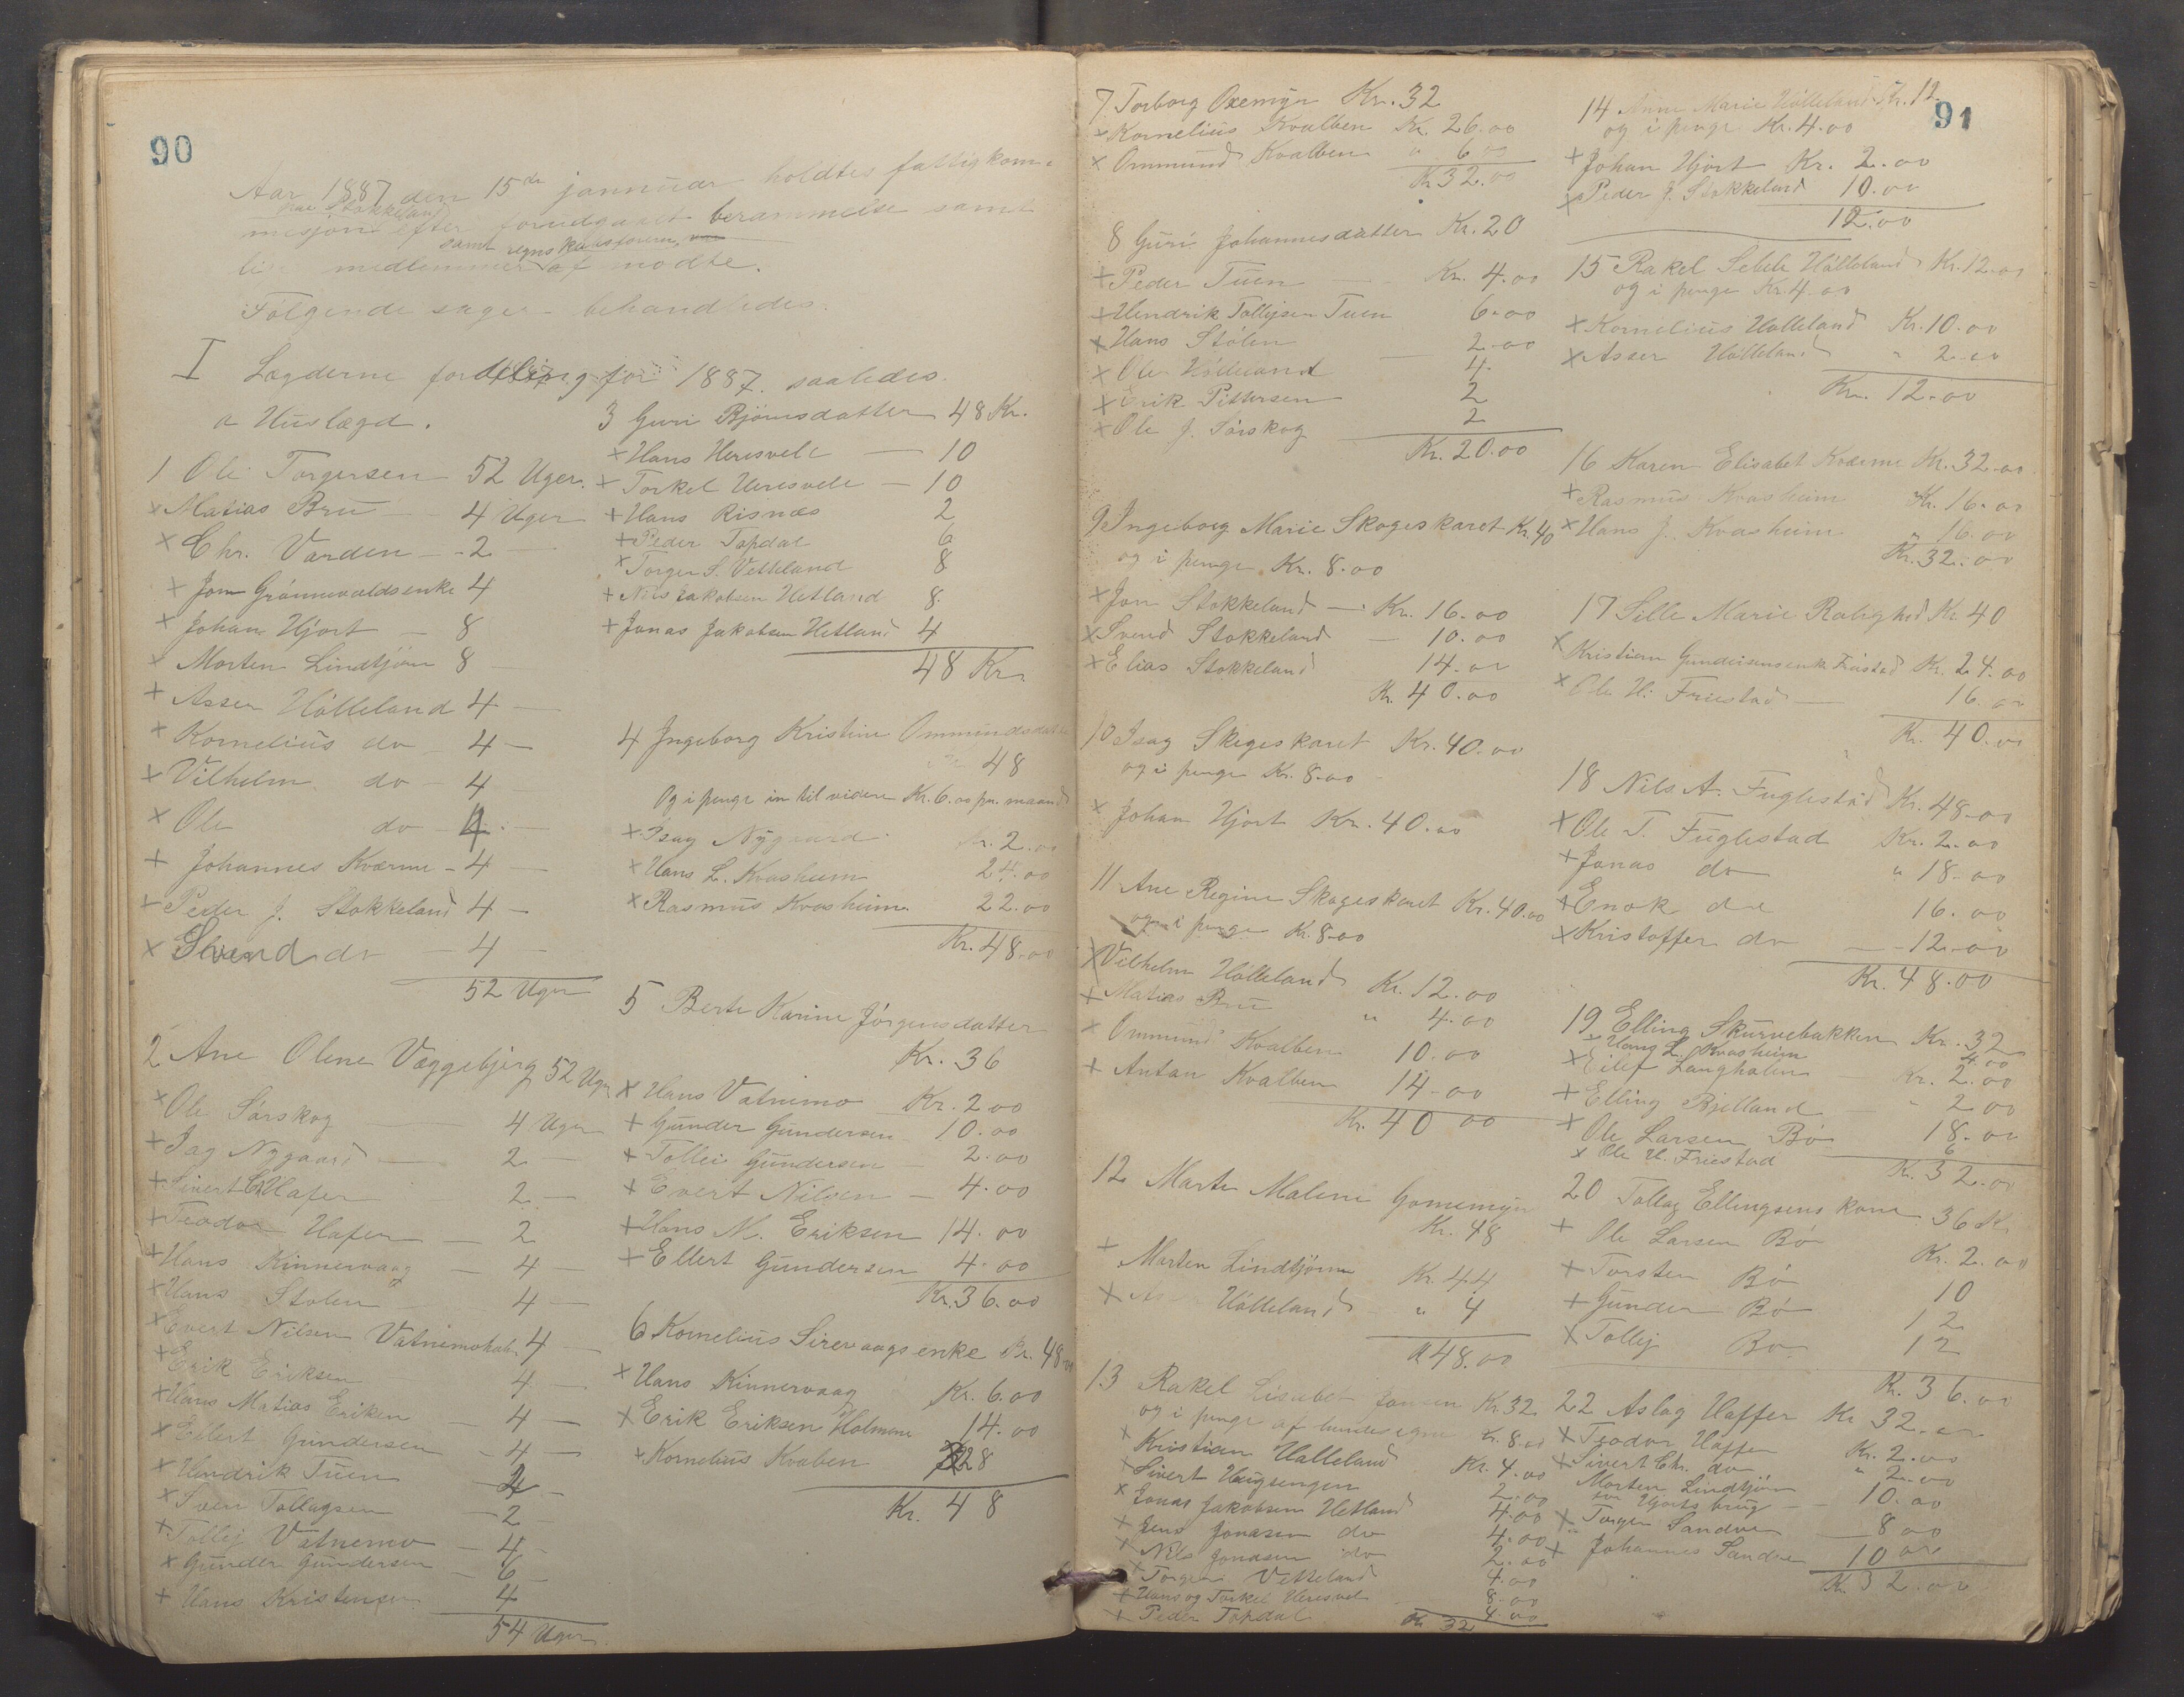 90
Aar 1887 den 15de jannuar holdtes fattigkom-
paa Stokkeland
misjon efter forudgaaet berammelse samt
samt regnskabsføreren
lige medlemmer af mødte.
Følgende sager behandledes.
I Lægderne fordeling for 1887. saaledes.
a Huslægd.
1 Ole Torgersen 52 Uger.
x Matias Bru 4 Uger
x Chr. Varden - 2 -
+ Jon Grønnevoldsenke 4
x Johan Hjort - 8
x Morten Lindtjørn 8 -
+ Asser Hålleland 4 -
x Kornelius do 4 -
+ Vilhelm do - 4 -
x Ole do - 4 -
+ Johannes Kværne - 4 -
+ Peder J. Stokkeland 4 -
x Svend do - 4 -
52 Uger
2 Ane Olene Væggebjerg 52 Uger
x Ole Sørskog 4 Uger
+ Isag Nygaard - 2 -
+ Sivert Chr Hafer 2 -
+ Teodor Hafer - 2
+ Hans Kinnervaag - 4 -
x Hans Stolen 4 -
x Evert Nilsen Vatnemo 4 -
+ Erik Eriksen 4 -
x Hans Matias Eriken - 4 -
x Ellert Gundersen - 4 -
x Hendrik Tuen - 4 -
x Sven Tollagsen - 2 -
+ Tollej Vatnemo - 4 -
x Gunder Gundersen - 6 -
+ Hans Kristensen 4
54 Uger.
3 Guri Bjørnsdatter 48 Kr.
x Hans Heresvele - 10
+ Torkel Heresvele - 10
+ Hans Risnæs 2
+ Peder Topdal 6
x Torger S. Vetteland 8
+ Nils Jakobsen Hetland 8.
+ Jonas Jakobsen Hetland 4
48 Kr.
4 Ingeborg Kristine Ommundsdatter
48
Og i penge in til videre Kr. 6.00 pr. maaned
x Isag Nygaard Kr. 2.00
x Hans L. Kvasheim 24.00
x Rasmus Kvasheim. 22.00
Kr. 48.00
5 Berte Karine Jørgensdatter
Kr. 36
x Hans Vatnemo Kr. 2.00
+ Gunder Gundersen 10.00
+ Tollei Gundersen - 2.00
x Evert Nilsen - 4.00
+ Hans M. Eriksen 14.00
+ Ellert Gundersen 4.00
Kr. 36.00
6 Kornelius Sirevaags enke Kr. 48.00
x Hans Kinnervaag Kr. 6.00
x Erik Eriksen Holmene 14.00
x Kornelius Kvalben 28
Kr. 48
91
7 Torborg Oxemyr Kr. 32
x Kornelius Kvalben Kr. 26.00
x Ommund Kvalben " 6.00
Kr 32.00
8 Guri Johannesdatter Kr. 20
+ Peder Tuen - Kr. 4.00
+ Hendrik Tollejsen Tuen 6.00
x Hans Stölen 2.00
x Ole Hålleland 4.
x Erik Pettersen 2
x Ole J. Sørskog 2
Kr. 20.00
9 Ingeborg Marie Skogeskaret Kr. 40
og i penge Kr. 8.00
x Jon Stokkeland - Kr. 16.00
x Svend Stokkeland - 10.00
x Elias Stokkeland 14.00
Kr. 40.00
10 Isag Skegeskaret Kr. 40.00
og i penge Kr. 8.00
x Johan Hjort Kr. 40.00
11 Ane Regine Skogeskaret Kr. 40.00
og i penge Kr. 8.00
x Vilhelm Hålleland Kr. 12.00
+ Matias Bru " 4.00
x Ommund Kvalben 10.00
+ Antan Kvalben 14.00
Kr. 40 00
12 Marte Malene Gomemyr
Kr. 48
+ Morten Lindtjørn Kr. 44
x Hålleland " 4
Kr 48.00
13 Rakel Lisabet Jansen Kr 32.
og i penge af hendes egne Kr. 8.00
x Kristian Halleland Kr. 4.00
x Sivert Haugsengen 2.00
x Jonas Jakobsen Hetland 4.00
+ Jens Jonasen do 4.00
x Nils Jonasen do 2.00
+ Torger Vetteland 4.00
+ Hans og Torkel Heresvel 8.00
+ Peder Topdal 4.00
Kr 32
14 Anne Marie Hålleland Kr. 12
og i penge Kr. 4.00
+ Johan Hjort Kr. 2.00
x Peder J. Stokkeland 10.00
12.00
15 Rakel Hålleland Kr. 12.00
og i penge Kr. 4.00
x Kornelius Halleland Kr. 10.00
x Asser Hålleland " 2.00
Kr. 12.00
16 Karen Elisabet Kværne Kr. 32.00
+ Rasmus Kvasheim Kr. 16.00
x Hans J. Kvasheim " 16.00
Kr. 32.00
17 Sille Marie Rolighed Kr 40
x Kristian Gundersensenke Friestad Kr. 24.00
x Ole H. Friestad - 16.00
Kr. 40.00
18 Nils A. Fuglestad Kr. 48.00
x Ole T. Fuglestad Kr. 2.00
+ Jonas do " 18.00
+ Enok do 16.00
x Kristoffer do - 12.00
Kr. 48.00
19 Elling Skurvebakken Kr. 32
x Hans L. Kvasheim 4.00
x Eilef Langholen Kr. 2.00
+ Elling Bjelland " 2 00
+ Ole Larsen Bø 18.00
x Ole H. Friestad 6
Kr. 32.00
20 Tollag Ellingsens kone 36 Kr
+ Ole Larsen Bø Kr. 2.00
+ Torsten Bø 10
+ Gunder Bø 12
x Tollej Bø 12
Kr. 36.00
22 Aslag Haffer Kr 32.00
x Teodor Haffer Kr. 2.00
+ Sivert Chr. do " 2.00
Morten Lindtjørn
for Hjorts brug - 10.00
x Torger Sandve 8 00
+ Johannes Sandve 10 00
Kr. 32.00